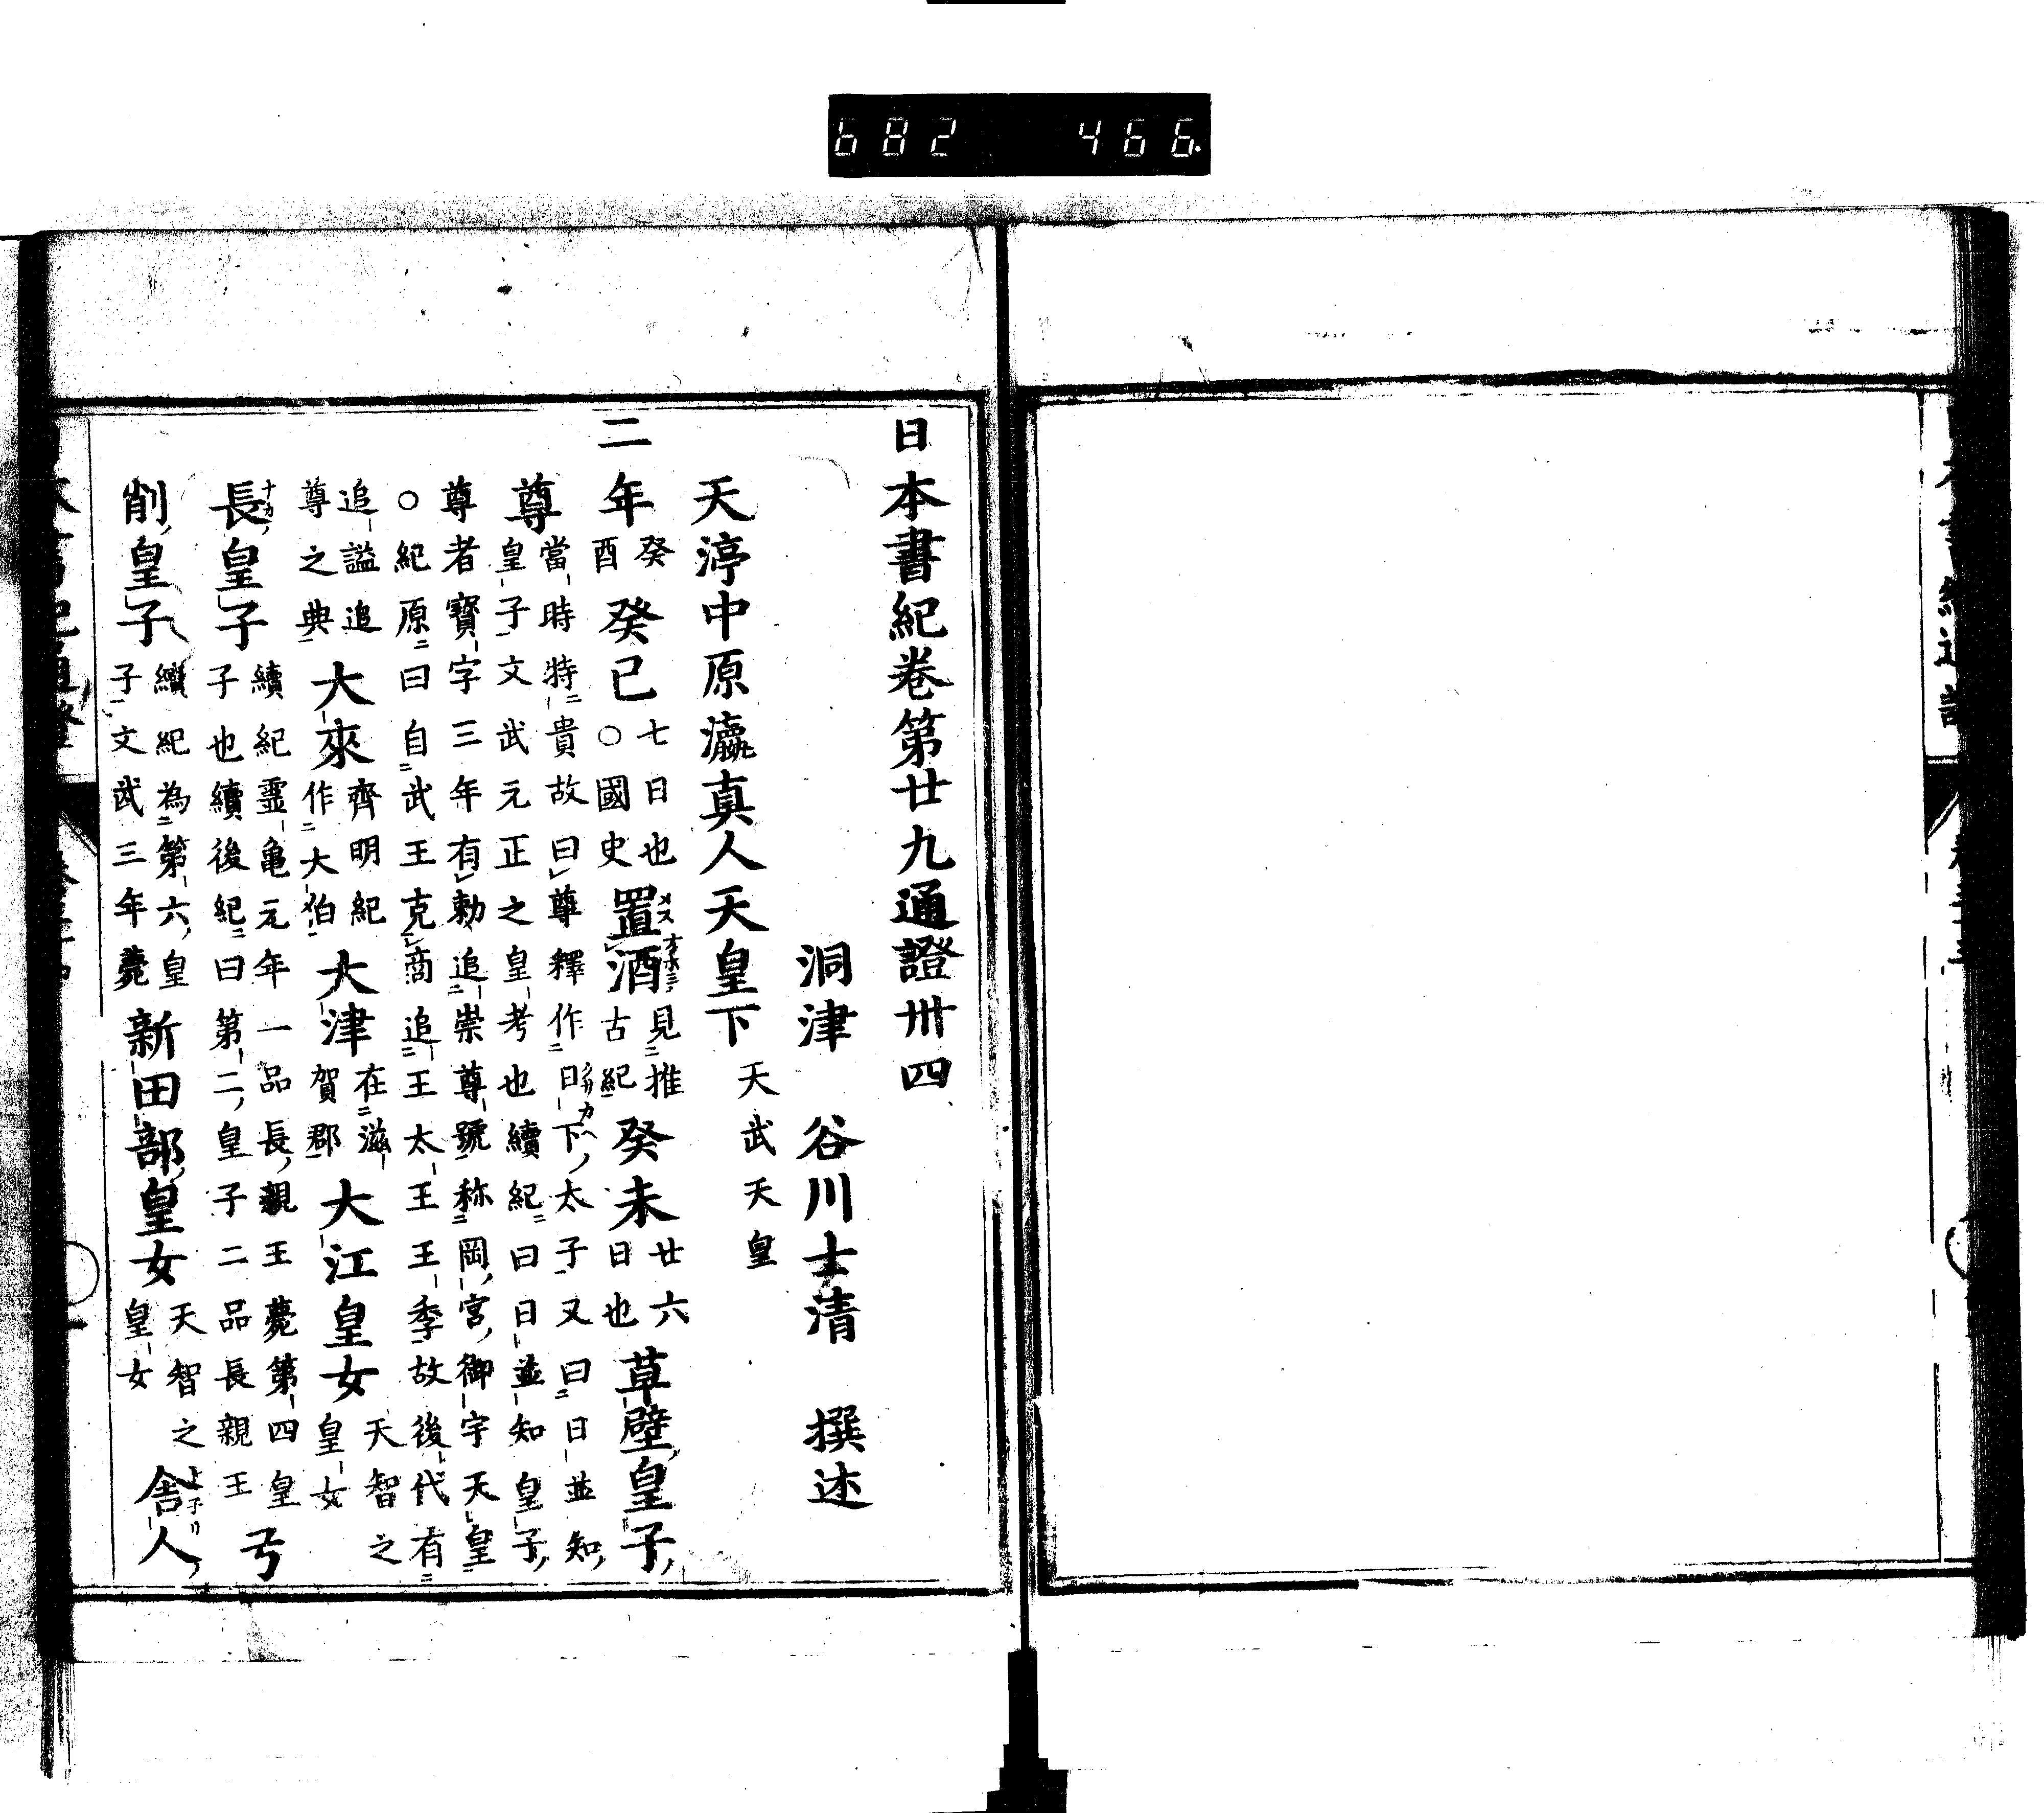 682 466.
日本書紀卷第廿九通證卅四
洞津 谷川士清 撰述
天渟中原瀛真人天皇下 天武天皇
二年 癸酉 癸巳 七日也○國史 置酒 見推古紀 癸未 廿六日也 草壁皇子
尊 當時特貴故曰尊釋作日下太子又曰日並知皇子文武元正之皇考也續紀曰日並知皇子
尊者寶字三年有勅追崇尊號称岡宮御宇天皇○紀原曰自武王克商追王太王王季故後代有
追謚追尊之典 大來 齊明紀作大伯 大津 在滋賀郡 大江皇女 天智之皇女
長皇子 續紀靈亀元年一品長親王薨第四皇子也續後紀曰第二皇子二品長親王 弓
削皇子 續紀為第六皇子文武三年薨 新田部皇女 天智之皇女 舎人